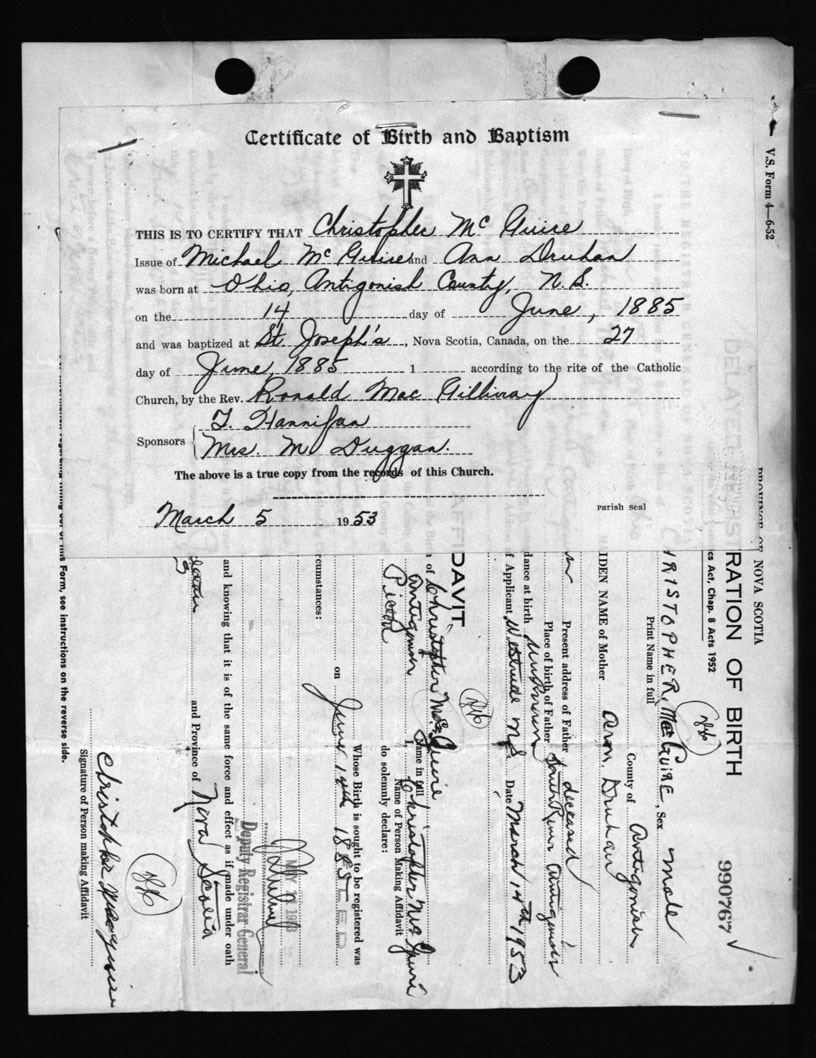 Certificate of Birth and Baptism
THIS IS TO CERTIFY THAT Christopher McGuire
Issue of Michael McGuire and Ann Druhan
was born at Ohio, Antigonish County, N.S.
on the 14 day of June, 1885
and was baptized at St. Joseph's, Nova Scotia, Canada, on the 27
day of June, 1885 1 according to the rite of the Catholic
Church, by the Rev. Ronald MacGillivray
Sponsors { T. Hannifan
Mrs. M. Duggan.
The above is a true copy from the records of this Church.
March 5 1953
Parish Seal
V.S. Form 4—6-52
PROVINCE OF NOVA SCOTIA
DELAYED
RATION OF BIRTH
990767
cs Act, Chap. 8 Acts 1952
RISTOPHER MacGUIRE, Sex Male
Print Name in full
County of Antigonish
IDEN NAME of Mother Ann Druhan
Present address of Father deceased
Place of birth of Father South River Antigonish
dance at birth unknown
f Applicant Westville N.S. Date March 14th 1953
DAVIT
n of Christopher MacGuire, Christopher MacGuire
Name in full Name of Person Making Affidavit
Antigonish
Pictou do solemnly declare:
Whose Birth is sought to be registered was
on June 14th 1885
rcumstances:
MAY 1953
Deputy Registrar General
and knowing that it is of the same force and effect as if made under oath
and Province of Nova Scotia
Christopher MacGuire
Signature of Person making Affidavit
of this Form, see instructions on the reverse side.